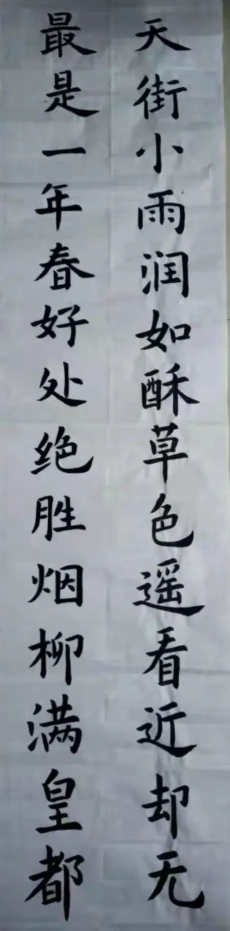 天街小雨润如酥草色遥看近却无
最是一年春好处绝胜烟柳满皇都